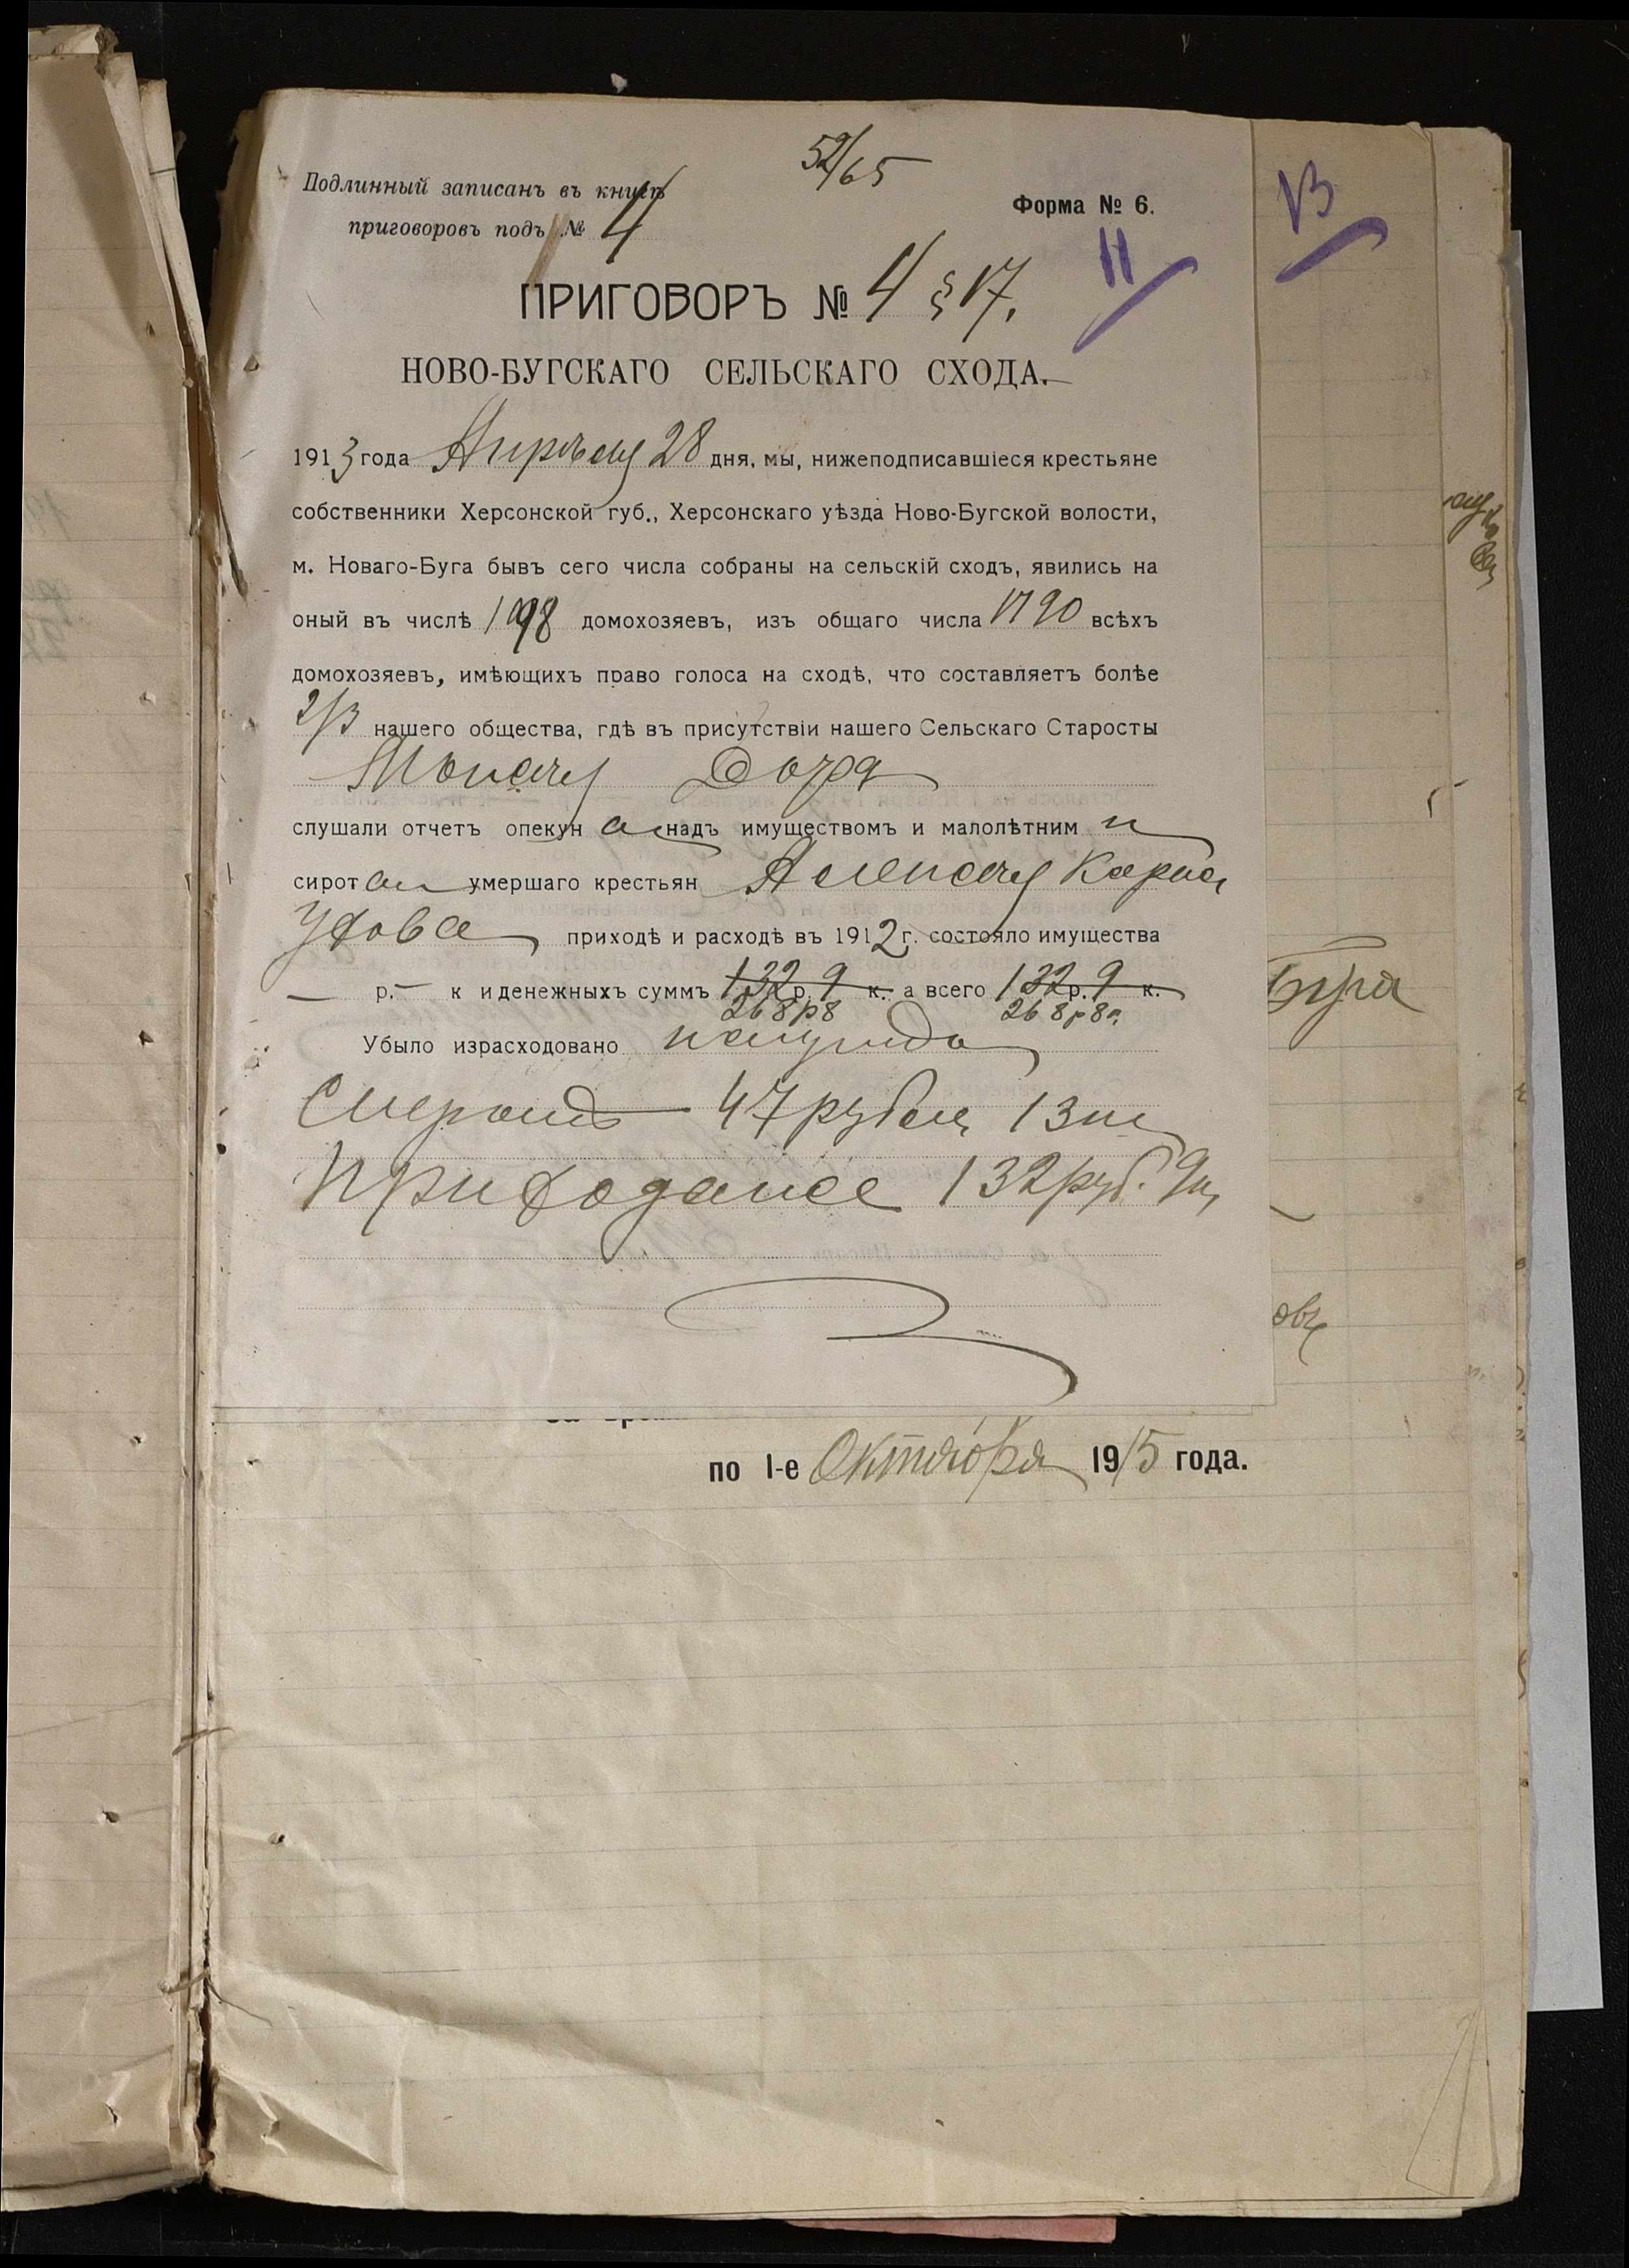 52/65
Подлинный записанъ въ книгѣ
приговоровъ подъ № 4
Форма № 6.
13
11
ПРИГОВОРЪ № 4 § 17.
НОВО-БУГСКАГО СЕЛЬСКАГО СХОДА.
1913 года Апрѣля 28 дня, мы, нижеподписавшіеся крестьяне
собственники Херсонской губ., Херсонскаго уѣзда Ново-Бугской волости,
м. Новаго-Буга бывъ сего числа собраны на сельскій сходъ, явились на
оный въ числѣ домохозяевъ, изъ общаго числа 1790 всѣхъ
домохозяевъ, имѣющихъ право голоса на сходѣ, что составляетъ болѣе
2/3 нашего общества, гдѣ въ присутствіи нашего Сельскаго Старосты
слушали отчетъ опекуна надъ имуществомъ и малолѣтним и
сиротами умершаго крестьян Карпа
приходѣ и расходѣ въ 1912 г. состояло имущества
— р. — к и денежныхъ суммъ 132 р. 9 к. а всего 132 р. 9 к.
268 р 8 268 р 8 к.
Убыло израсходовано
47 рублей 13 к
132 руб. 9 к,
Буга
овъ
по 1-е Октября 1915 года.